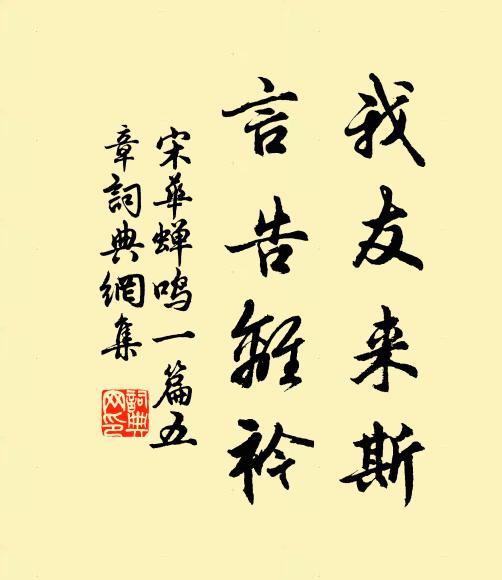 我友来斯
言告離衿
宋華蝉鸣一篇五
章詞典網集
詞典
网印